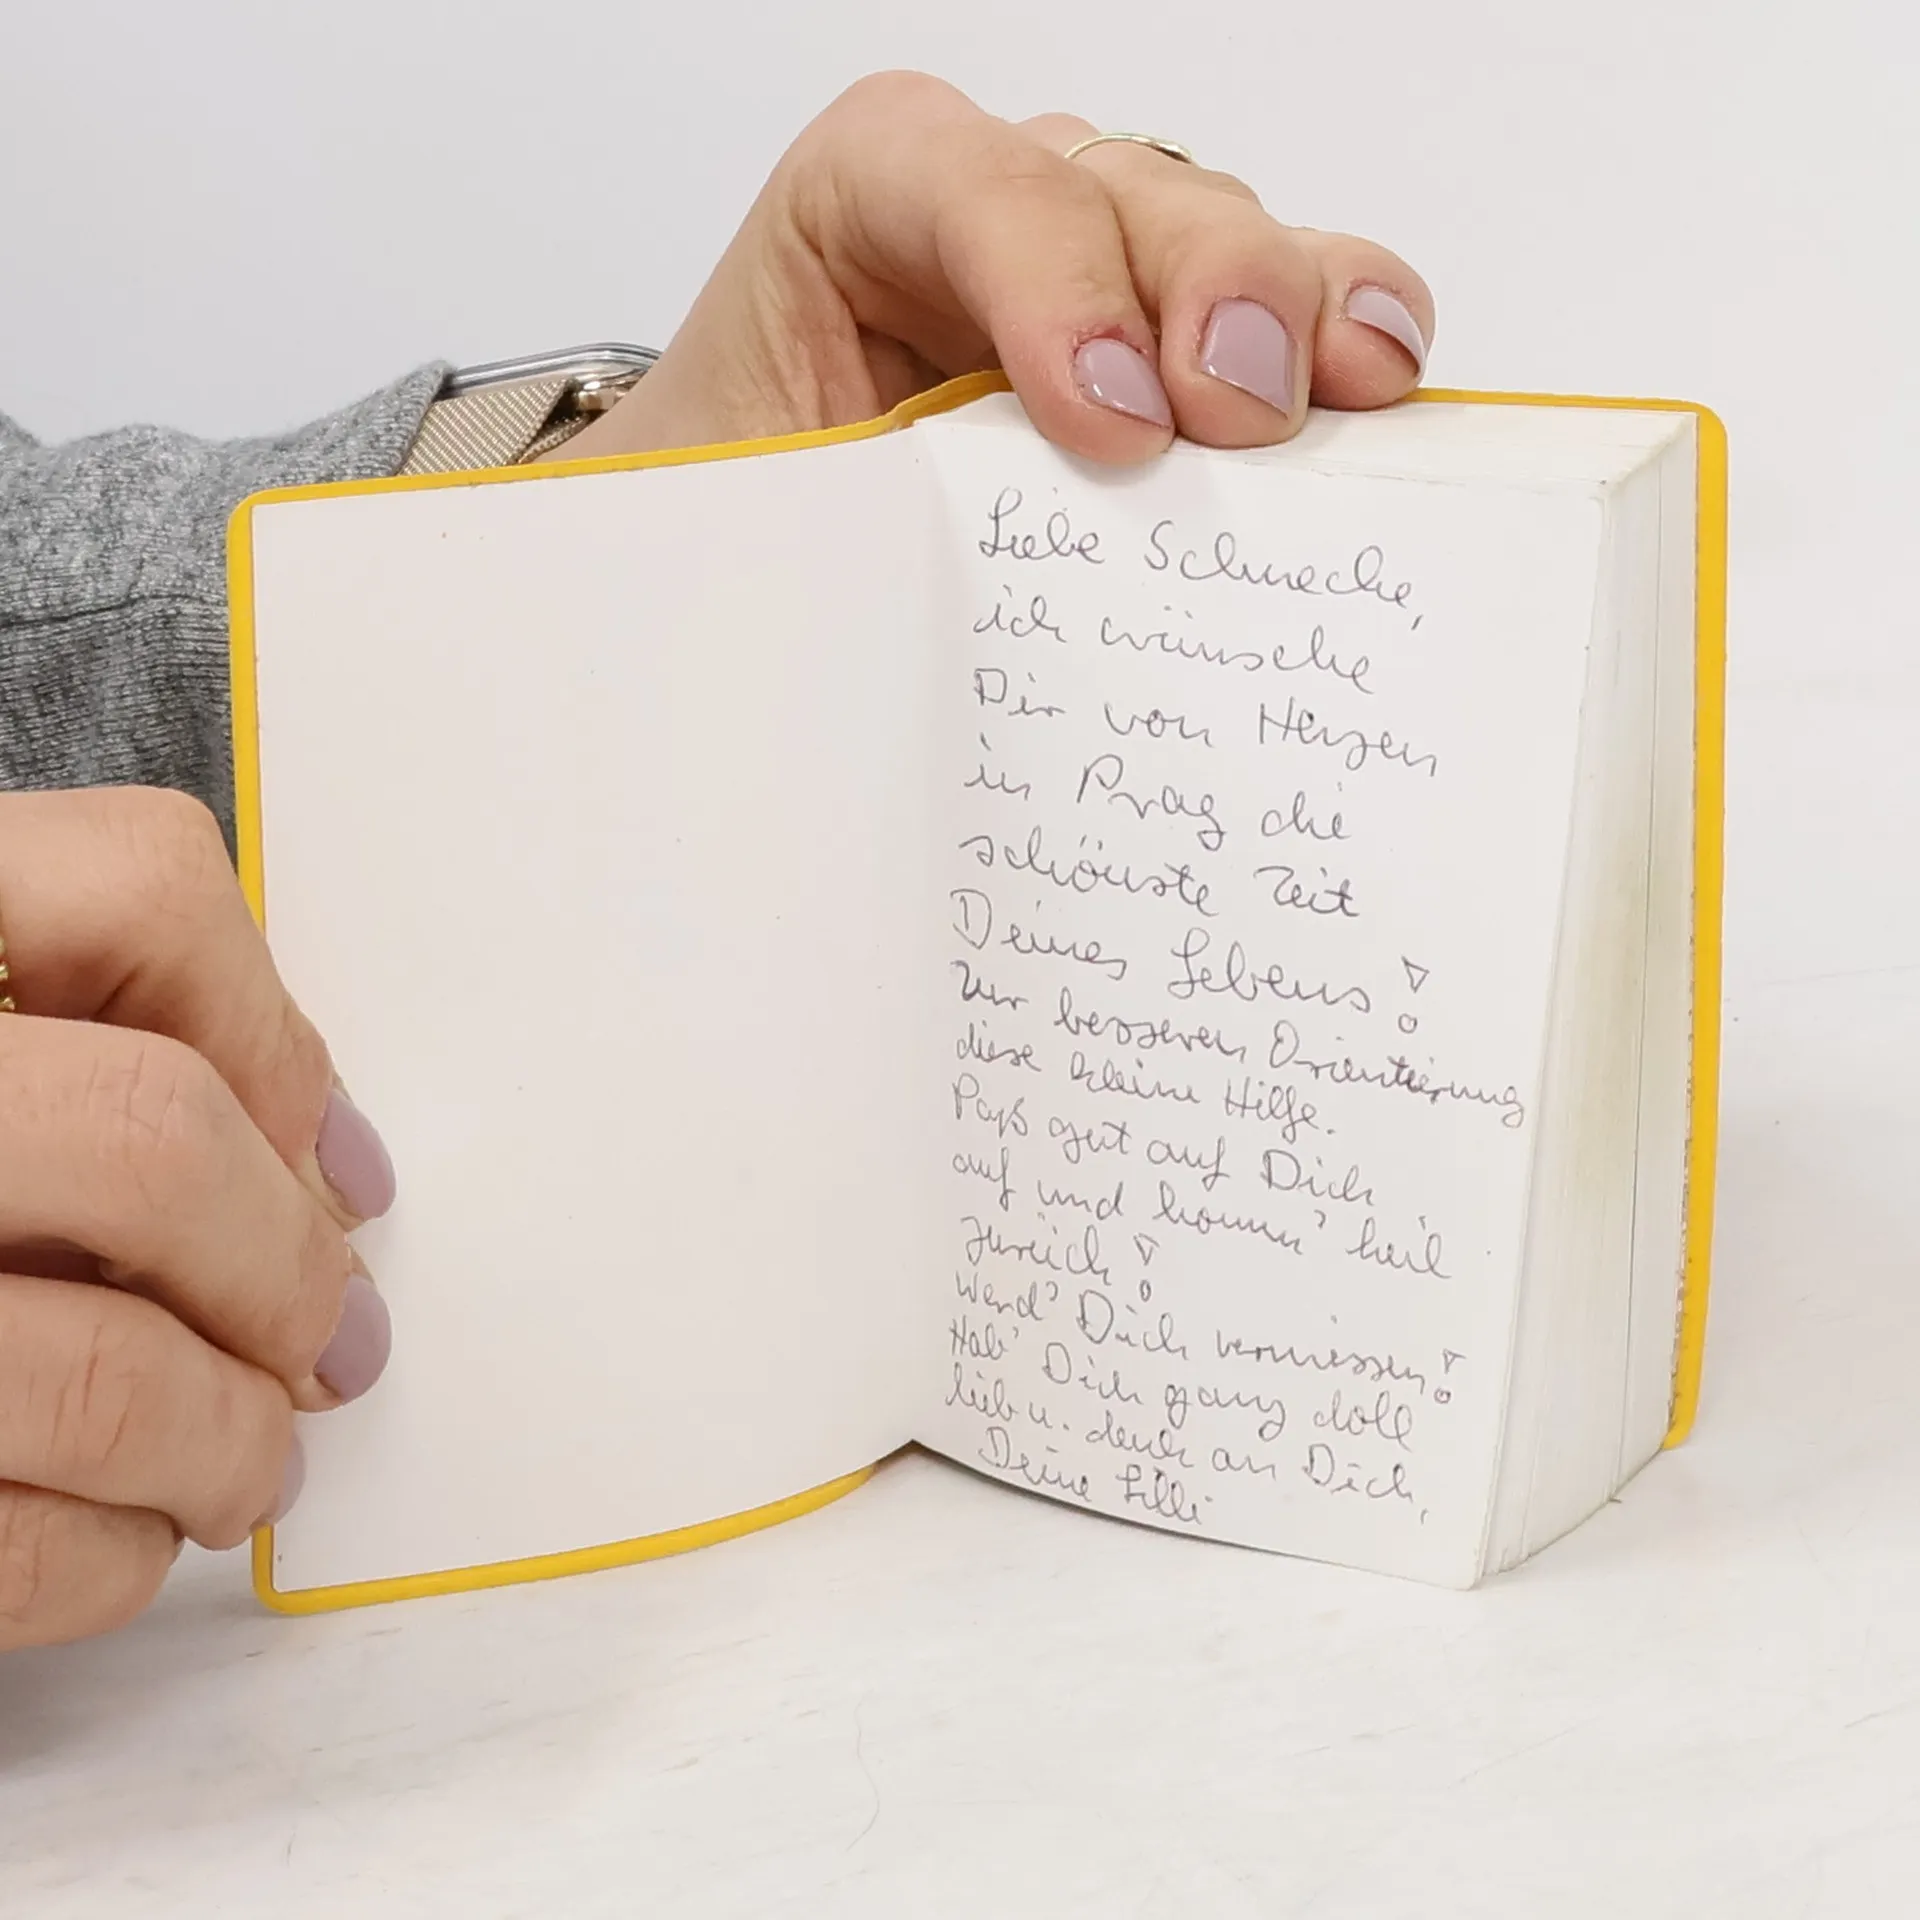 Liebe Schnecke,
ich wünsche
Dir von Herzen
in Prag die
schönste Zeit
Deines Lebens!
Zur besseren Orientierung
diese kleine Hilfe.
Paß gut auf Dich
auf und komm' heil
zurück!
Werd' Dich vermissen!
Hab' Dich ganz doll
lieb u. denk an Dich,
Deine Lilli